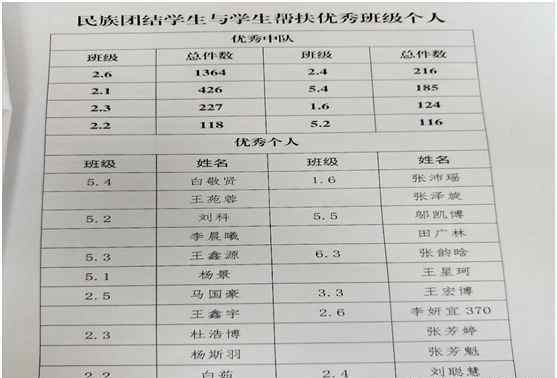 民族团结学生与学生帮扶优秀班级个人
优秀中队
班级 总件数 班级 总件数
2.6 1364 2.4 216
2.1 426 5.4 185
2.3 227 1.6 124
2.2 118 5.2 116
优秀个人
班级 姓名 班级 姓名
5.4 白敬贤 1.6 张沛瑶
王苑蓉 张泽旋
5.2 刘科 5.5 邬凯博
李晨曦 田广林
5.3 王鑫源 6.3 张韵晗
5.1 杨景 王星珂
2.5 马国豪 3.3 王宏博
王鑫宇 2.6 李妍宜 370
2.3 杜浩博 张芳婷
杨斯羽 张芳魁
2.2 白茹 2.4 刘聪慧